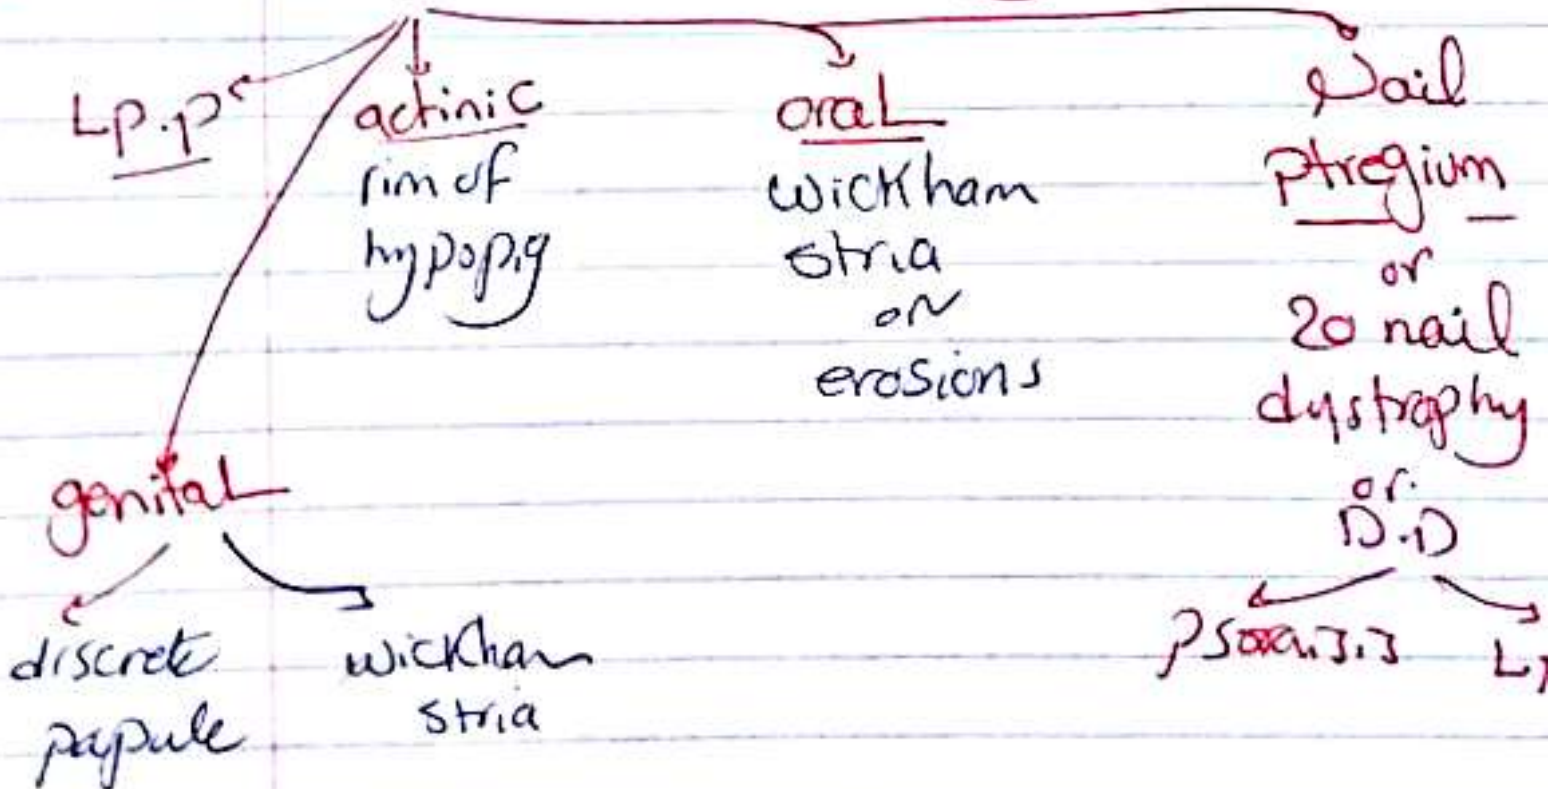 Lp.p
actinic
rim of
hypopig
oral
wickham
stria
or
erosions
Nail
ptregium
or
20 nail
dystrophy
or
D.D
genital
discrete
papule
wickham
stria